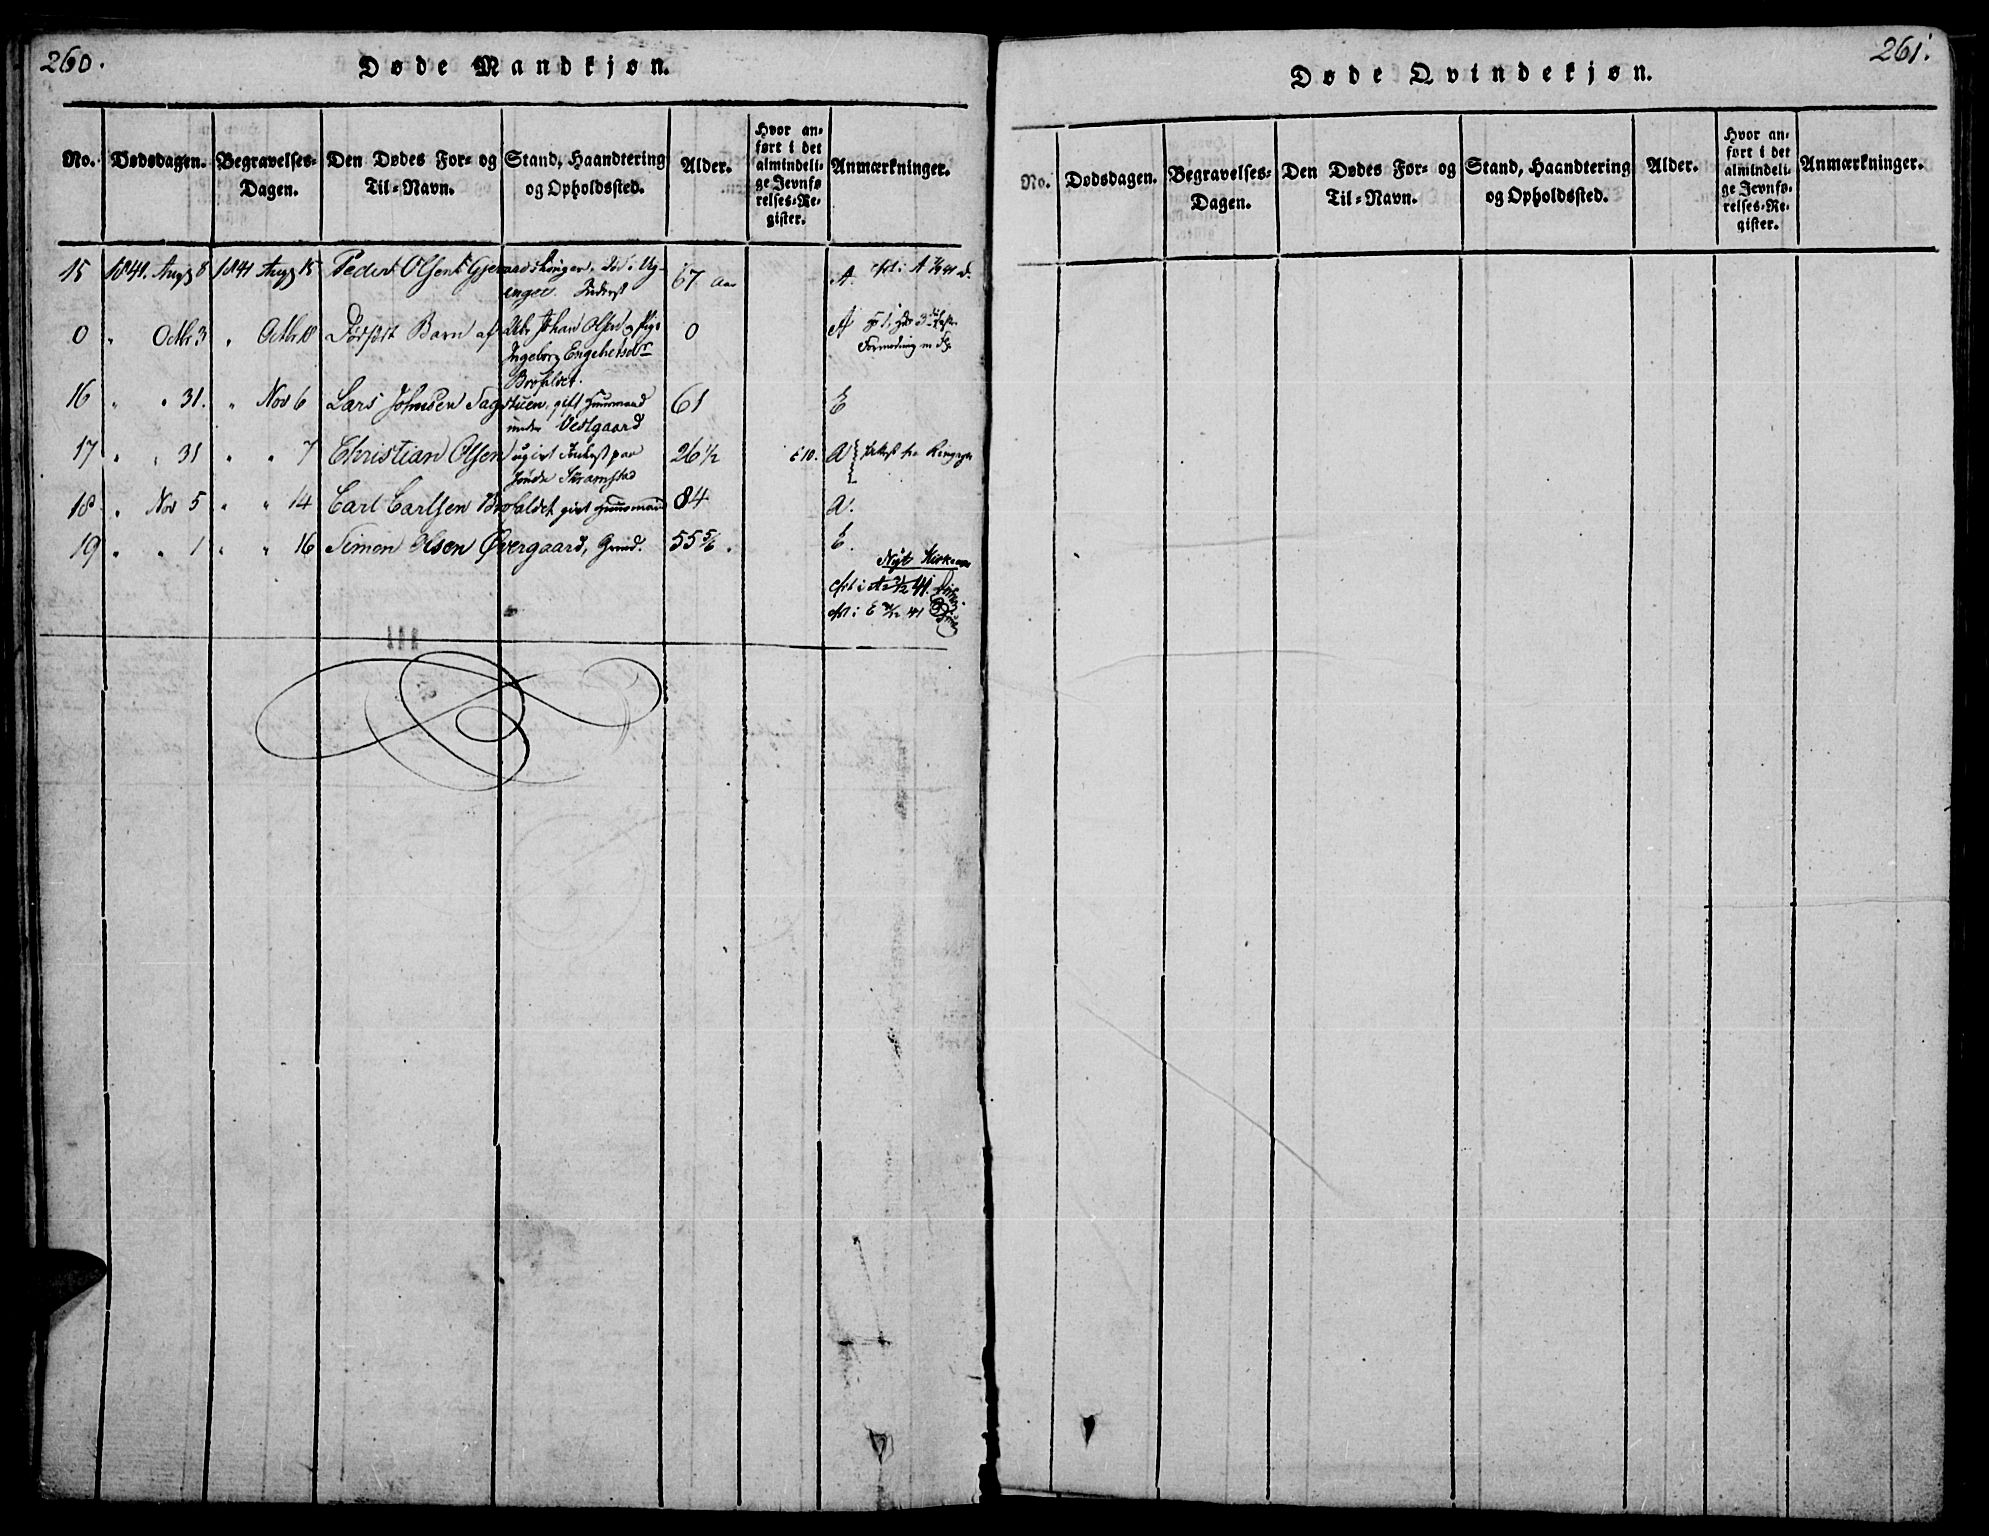 260.
Døde Mandkjøn.
No. Dødsdagen. Begravelses-Dagen. Den Dødes For- og Til-Navn. Stand, Haandtering og Opholdssted. Alder. Hvor anført i det almindelige Jevnførelses-Register. Anmærkninger.
15 1841. Aug 8 1841 Aug 15 Peder Olsen 67 Aar A.
0 " Octbr 3 " Octbr 10 Dødfødt Barn af Johan Olsen og Pige 0 A
Ingeborg
Brofaldet.
16 " " 31. " Nov 6 Lars Johnsen Sagstuen, gift Huusmand 61 E
under Vestgaard
17 " " 31 " " 7 Christian Olsen ugivt 26 1/2 E 10. A
18 " Nov 5 " " 14 Carl Carlsen Brofaldet givt Huusmand 84 A.
19 " " 1 " " 16 Simon Olsen Øvergaard, Grmd. 55 5/6. E.
261.
Døde Qvindekjøn.
No. Dødsdagen. Begravelses-Dagen. Den Dødes For- og Til-Navn. Stand, Haandtering og Opholdssted. Alder. Hvor anført i det almindelige Jevnførelses-Register. Anmærkninger.